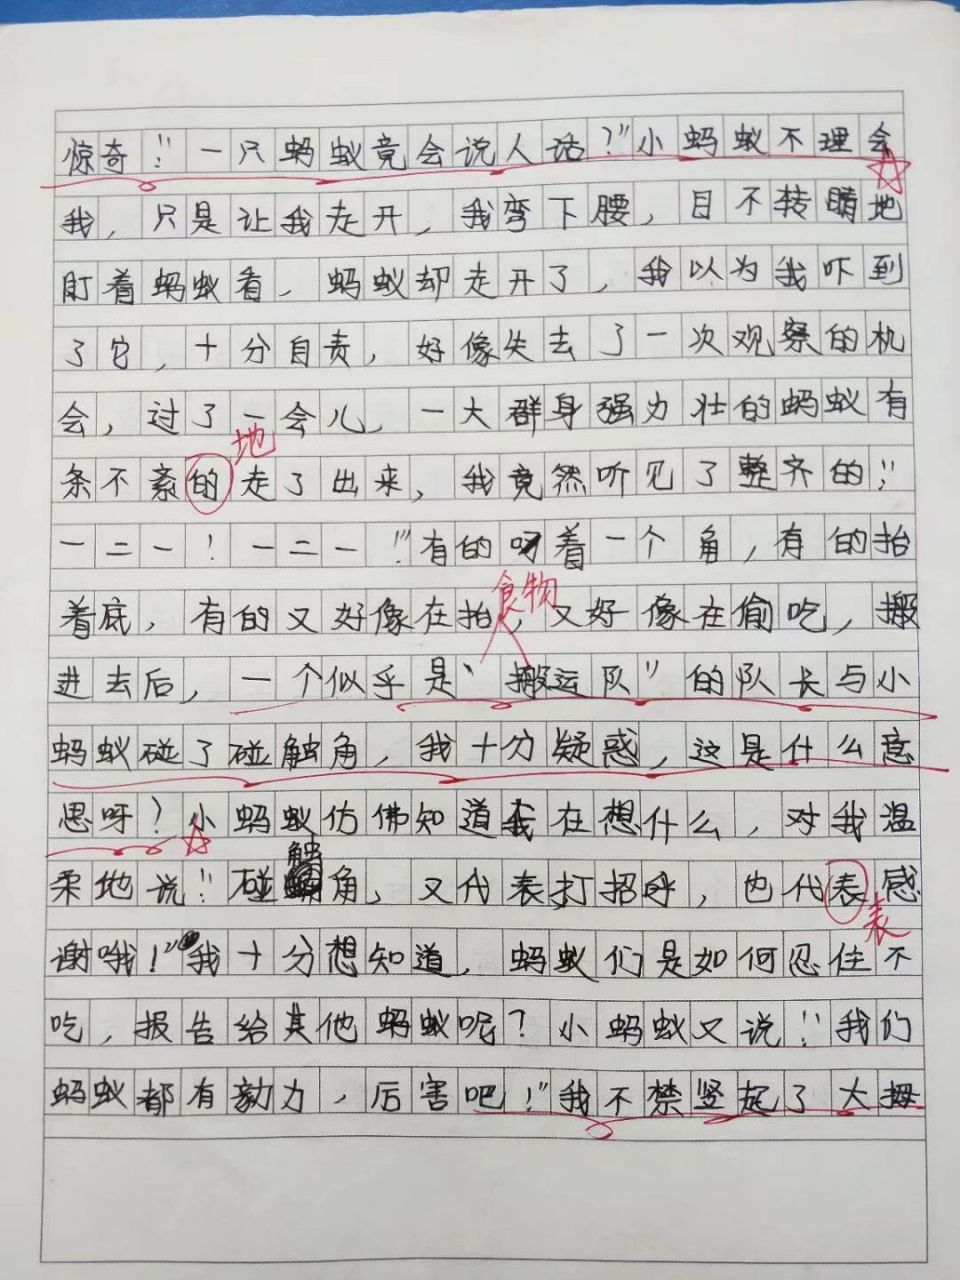 惊奇:"一只蚂蚁竟会说人话?"小蚂蚁不理会
我,只是让我走开,我弯下腰,目不转睛地
盯着蚂蚁看,蚂蚁却走开了,我以为我吓到
了它,十分自责,好像失去了一次观察的机
会,过了一会儿,一大群身强力壮的蚂蚁有
地
条不紊的走了出来,我竟然听见了整齐的:"
一二一!一二一!"有的呀着一个角,有的抬
食物
着底,有的又好像在抬,又好像在偷吃,搬
进去后,一个似乎是"搬运队"的队长与小
蚂蚁碰了碰触角,我十分疑惑,这是什么意
思呀?小蚂蚁仿佛知道我在想什么,对我温
柔地说:"碰触角,又代表打招呼,也代表感
表
谢哦!"我十分想知道,蚂蚁们是如何忍住不
吃,报告给其他蚂蚁呢?小蚂蚁又说:"我们
蚂蚁都有毅力,厉害吧!"我不禁竖起了大拇